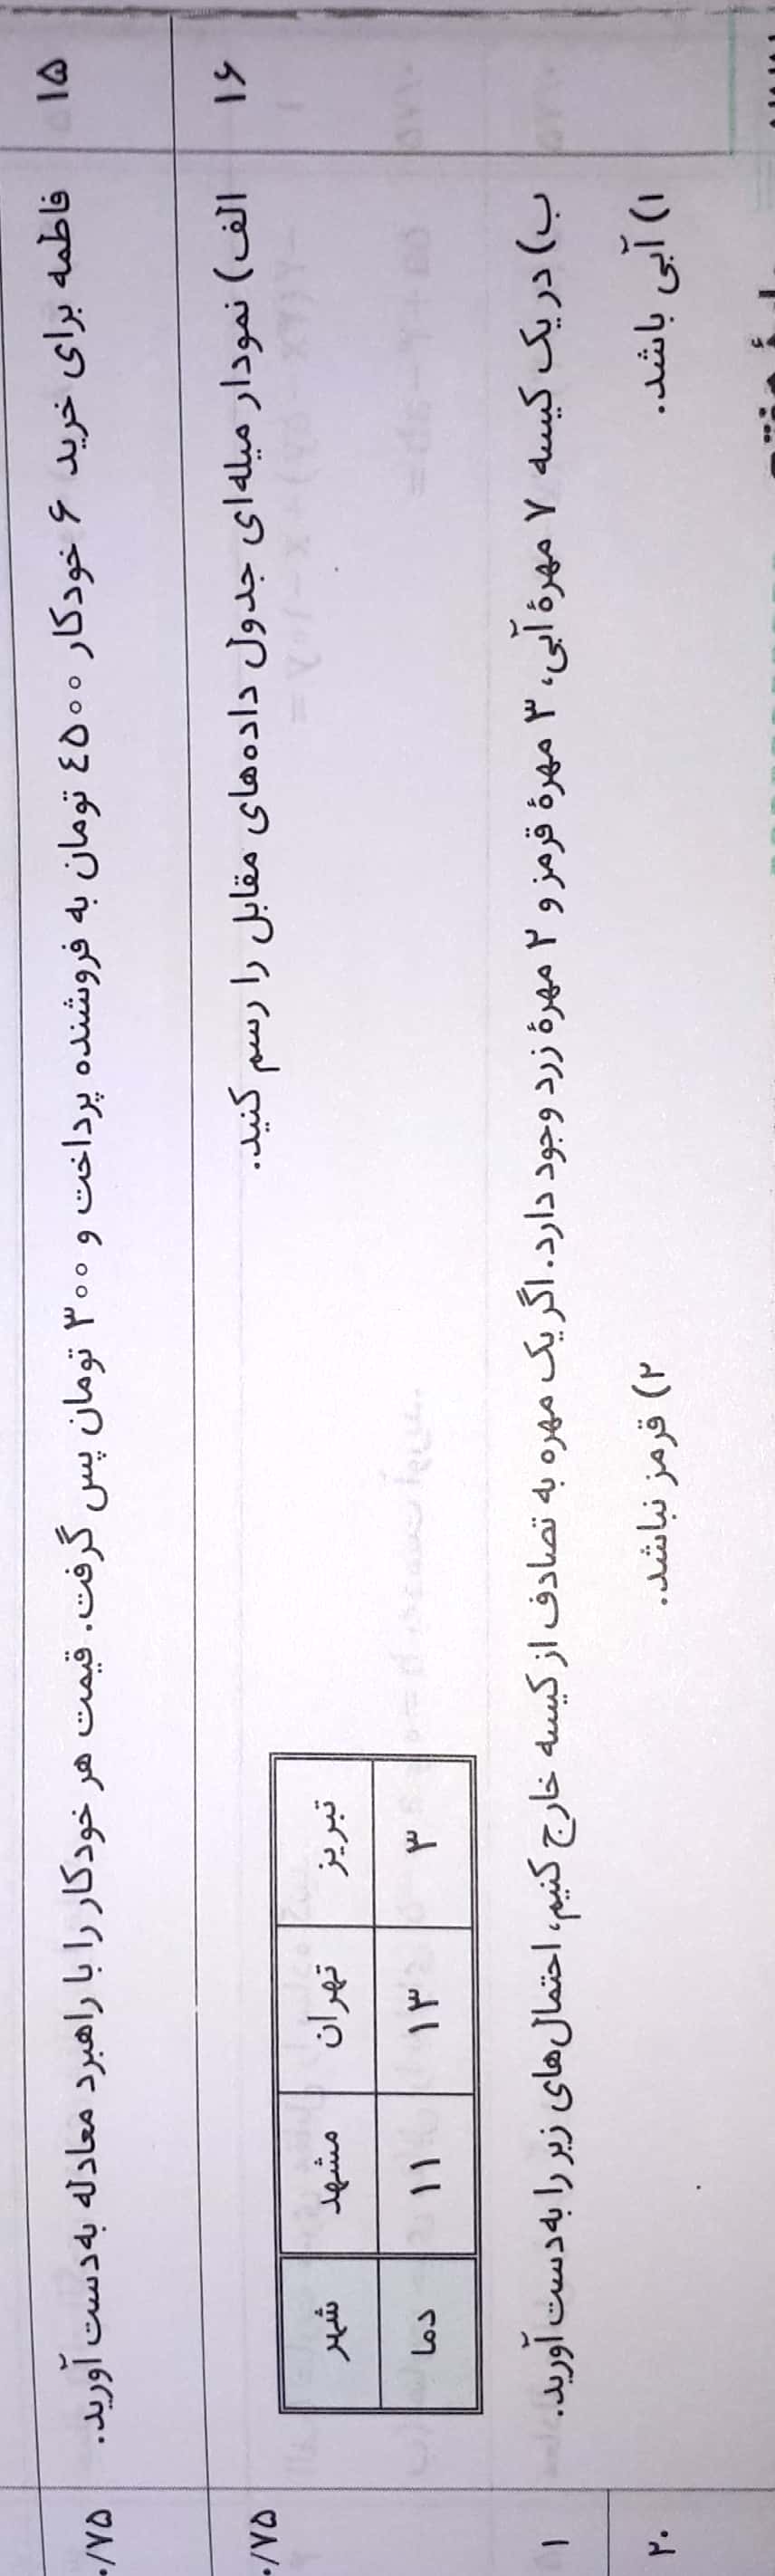 ۱۵ فاطمه برای خرید ۶ خودکار ۴۵۰۰ تومان به فروشنده پرداخت و ۳۰۰ تومان پس گرفت. قیمت هر خودکار را با راهبرد معادله به‌دست آورید. ۰/۷۵
۱۶ الف) نمودار میله‌ای جدول داده‌های مقابل را رسم کنید. ۰/۷۵
تبریز تهران مشهد شهر
۳ ۱۳ ۱۱ دما
ب) در یک کیسه ۷ مهرهٔ آبی، ۳ مهرهٔ قرمز و ۲ مهرهٔ زرد وجود دارد. اگر یک مهره به تصادف از کیسه خارج کنیم، احتمال‌های زیر را به‌دست آورید. ۱
۱) آبی باشد. ۲) قرمز نباشد.
۲۰